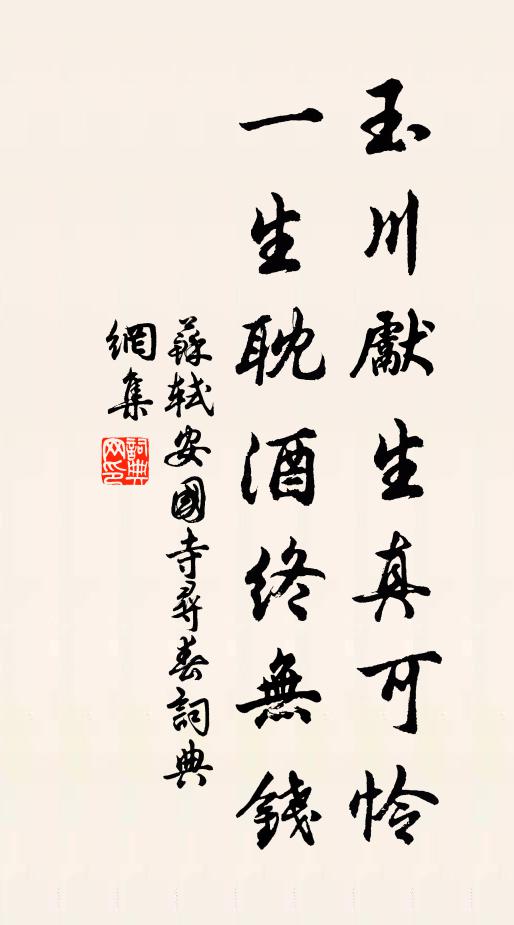 玉川獻生真可憐
一生耽酒終無錢
蘇軾安國寺尋春詞典
網集
詞典
网印